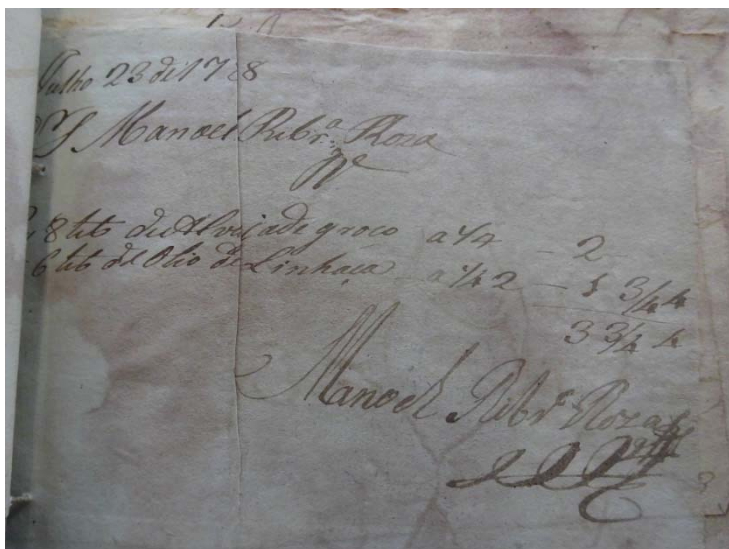 Julho 23 de 17 8
Manoel Ribr.ª Roza
8 lib de Alvaiade groço a ¼ – 2
6 lib de Olio de Linhaça a ¼ 2 – 1 ¾ 4
3 ¾ 4
Manoel Ribr.ª Roza